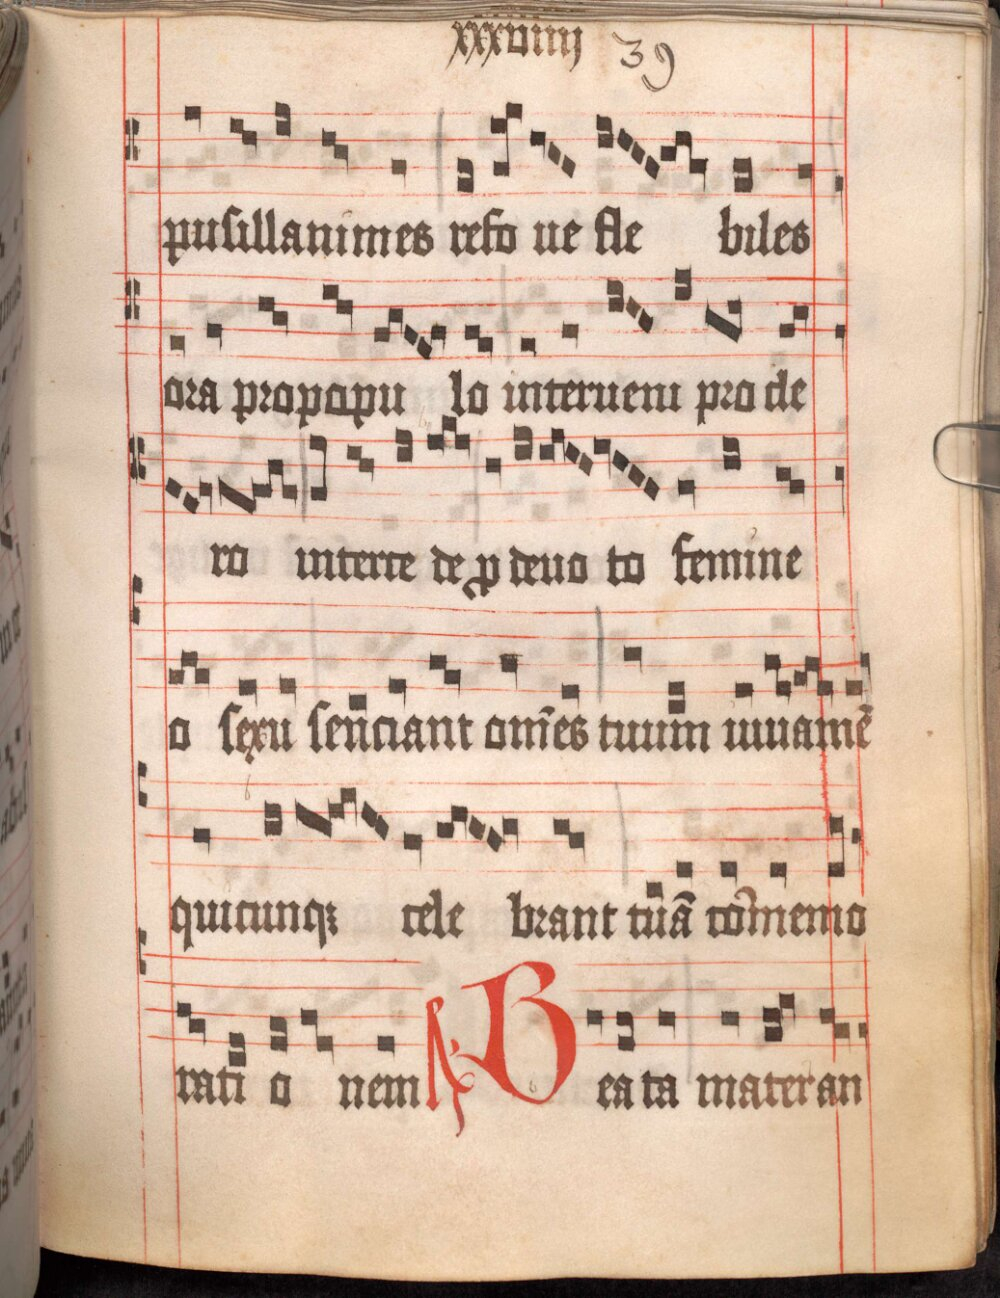 xxxviiij 39
pusillanimes refo ue fle biles
ora propopu lo interueni pro de
ro interce de ꝓ deuo to femine
o sexu senciant om̄es tuum iuuamē
quicunqꝫ cele brant tuā cōmemo
rati o nem A B ea ta mater an